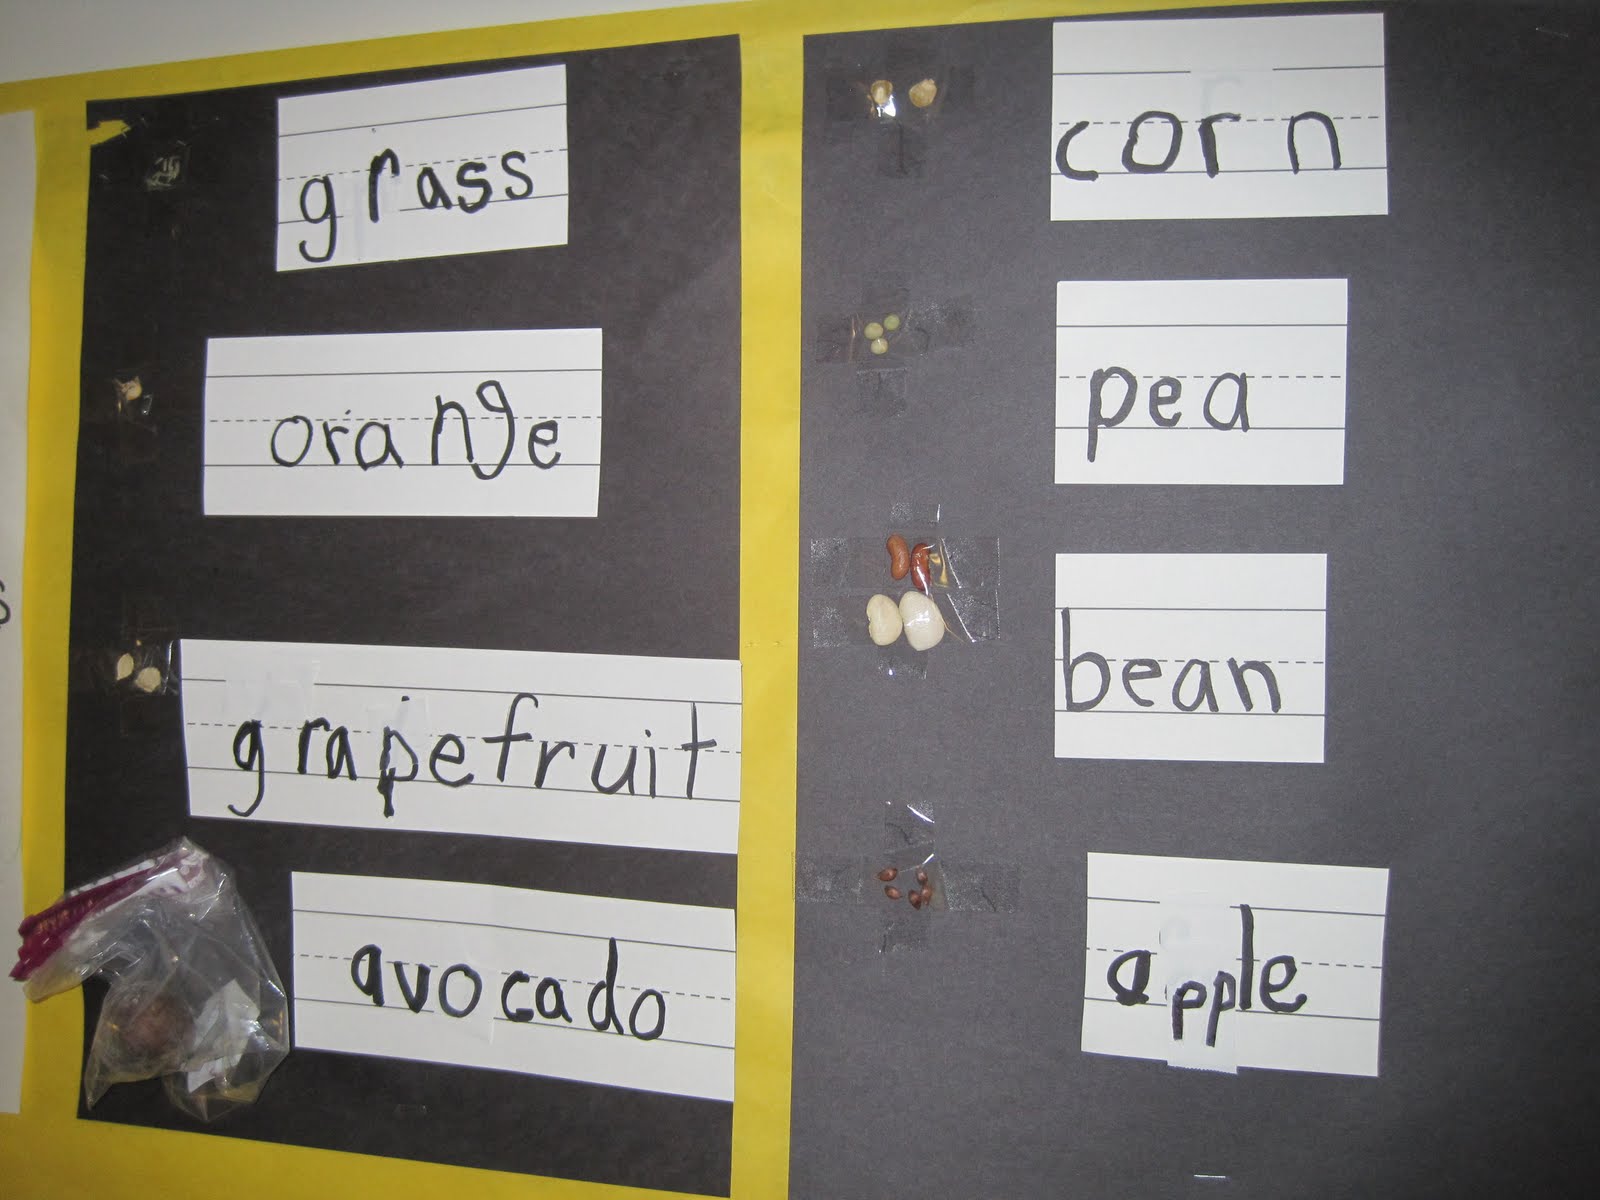 grass
orange
grapefruit
avocado
corn
pea
bean
apple